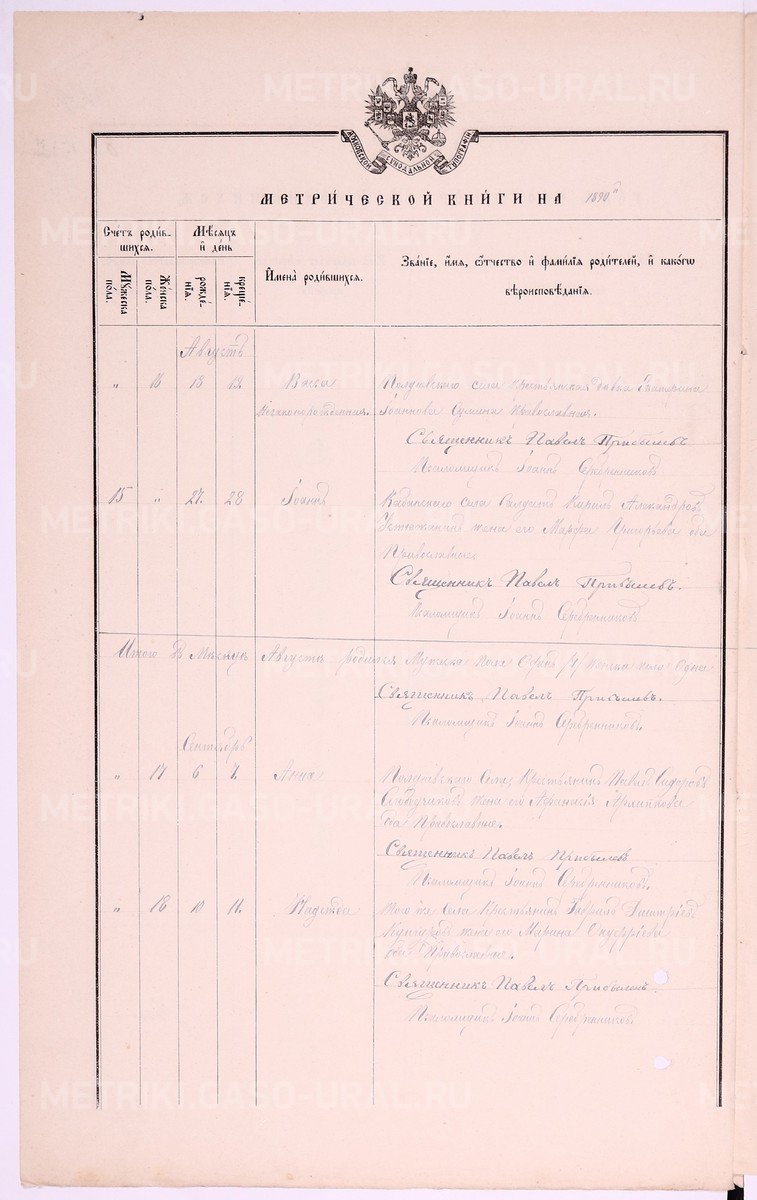 МОСКОВСКОЙ СѴНОДАЛЬНОЙ ТИПОГРАФІИ
МЕТРИ́ЧЕСКОЙ КНИ́ГИ НА 1890й
Сче́тъ роди́в-
шихся.
Мѣ́сяцъ
и҆ де́нь
И҆мена̀ роди́вшихся.
Зва́ніе, и҆́мя, ѻ҆́тчество и҆ фами́лія роди́телей, и҆ како́гѡ
вѣроисповѣ́данія.
Мꙋ́жеска
по́ла.
Же́нска
по́ла.
рожде́-
нія.
креще́-
нія.
Августъ
„ 16 13 13. Васса
незаконорожденная.
Полдневскаго села крестьянская девка Екатерина
Іоаннова Православная.
Священникъ Павелъ Прибылевъ
Псаломщикъ Іоаннъ Серебренниковъ
15 „ 27. 28 Іоаннъ
села Солдатъ Александровъ
жена его Марфа Григорьева оба
Православные.
Священникъ Павелъ Прибылевъ.
Псаломщикъ Іоаннъ Серебренниковъ
Итого въ Мѣсяцѣ Августѣ родился Мужска пола Женска пола Одна
Священникъ Павелъ Прибылевъ.
Псаломщикъ Іоаннъ Серебренниковъ.
Сентябрь
„ 17 6 7. Анна
Села Крестьянинъ Павелъ Сидоровъ
жена его
оба Православные.
Священникъ Павелъ Прибылевъ
Псаломщикъ Іоаннъ Серебренниковъ.
„ 18 10 11. Надежда
Того же Села Крестьянинъ Гаврило Димитріевъ
жена его Марина Онуфріева
оба Православные.
Священникъ Павелъ Прибылевъ.
Псаломщикъ Іоаннъ Серебренниковъ.
METRIKI.GASO-URAL.RU